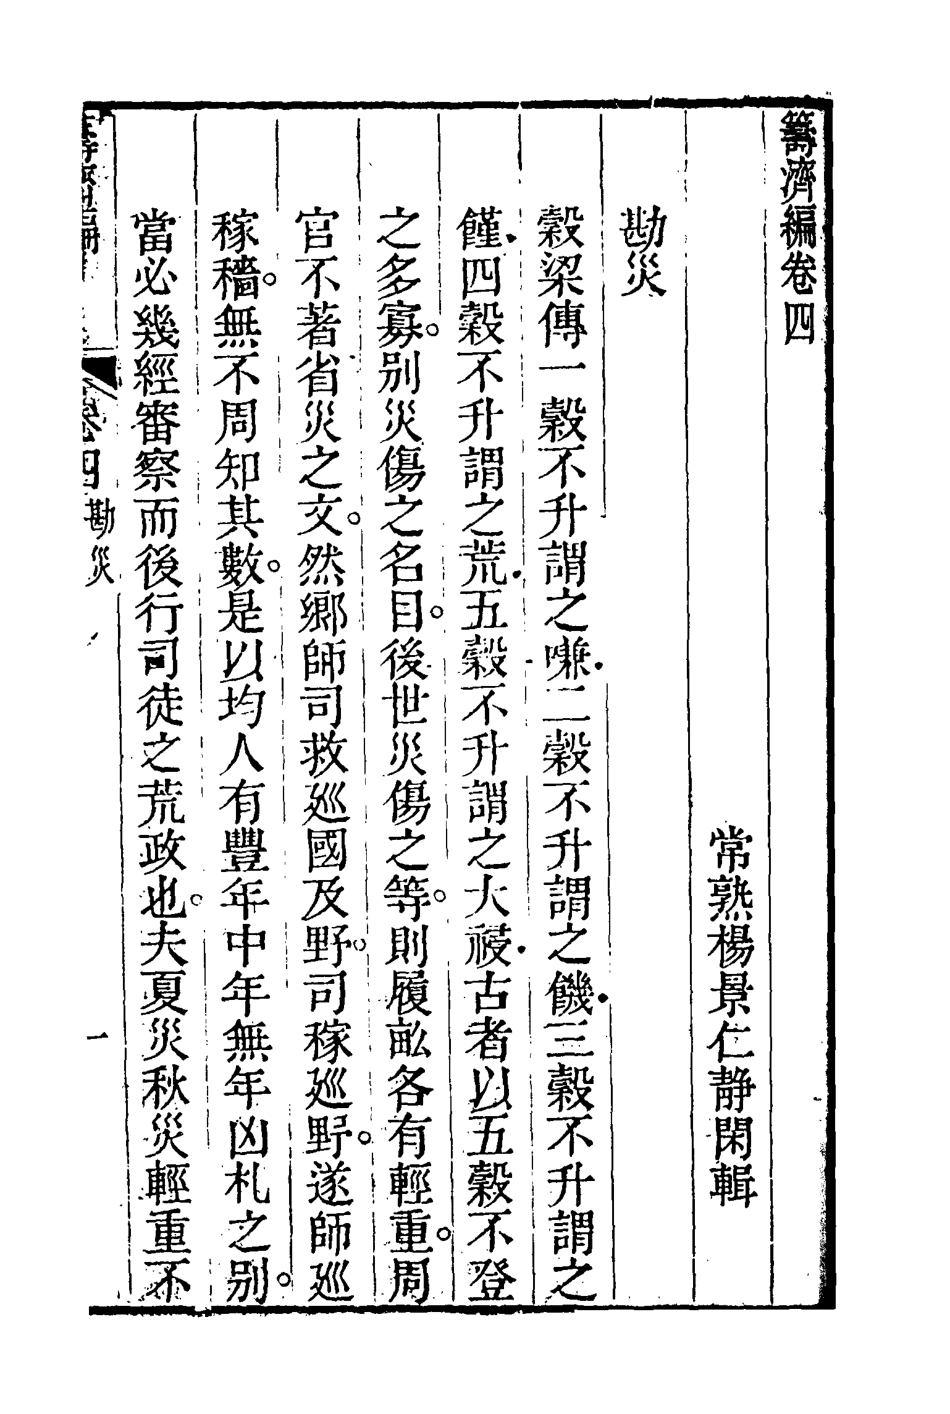 籌濟編卷四
常熟楊景仁靜閑輯
勘災
穀梁傳一穀不升謂之嗛二穀不升謂之饑三穀不升謂之
饉四穀不升謂之荒五穀不升謂之大祲古者以五穀不登
之多寡。別災傷之名目。後世災傷之等。則履畝各有輕重。周
官不著省災之文。然鄉師司救廵國及野。司稼廵野。遂師廵
稼穡。無不周知其數。是以均人有豐年中年無年凶札之別。
當必幾經審察而後行司徒之荒政也。夫夏災秋災輕重不
籌濟編 卷四 勘災 一